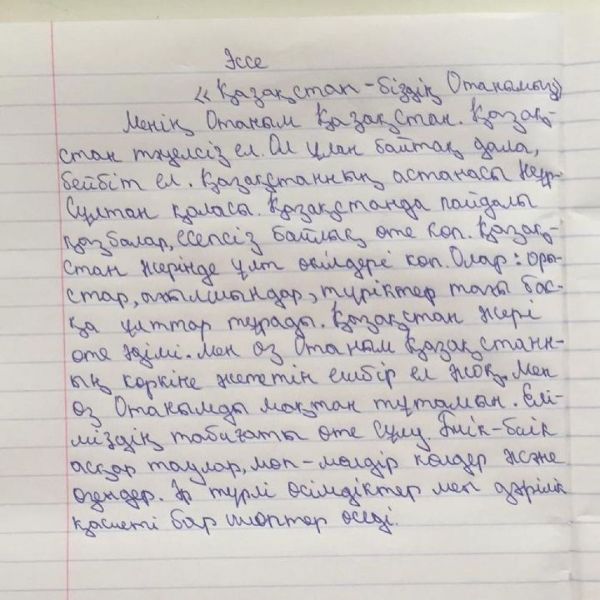 Эссе
«Қазақстан-біздің Отанымыз»
Менің Отаным Қазақстан. Қазақ-
стан тәуелсіз ел. Ол ұлан байтақ дала,
бейбіт ел. Қазақстанның астанасы Нұр-
Сұлтан қаласы. Қазақстанда пайдалы
қазбалар, есепсіз байлық өте көп. Қазақ-
стан жерінде ұлт өкілдері көп. Олар: оры-
стар, ағылшындар, түріктер тағы бас-
қа ұлттар тұрады. Қазақстан жері
өте әдімі. Мен өз Отаным Қазақстанн-
ың көркіне жететін ешбір ел жоқ. Мен
өз Отанымды мақтан тұтамын. Елі-
міздің табиғаты өте сұлу. Биік-биік
асқар таулар, мөп-мөлдір көлдер және
өзендер. Әр түрлі өсімдіктер мен дәрілік
қасиеті бар шөптер өседі.